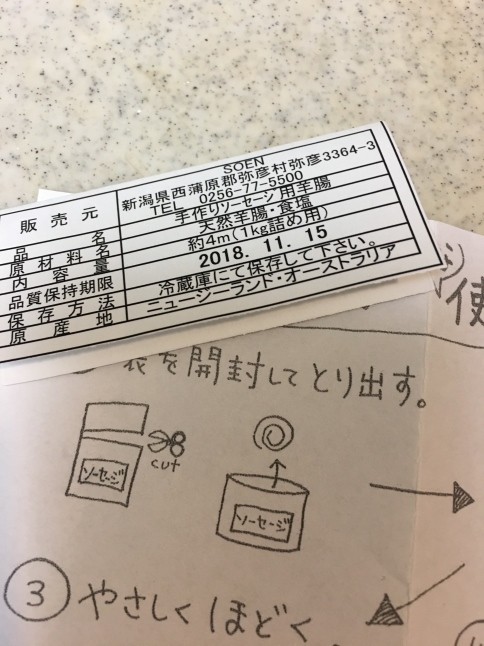 販売元 SOEN
新潟県西蒲原郡弥彦村弥彦3364-3
TEL 0256-77-5500
品名 手作りソーセージ用羊腸
原材料名 天然羊腸・食塩
内容量 約4m(1kg詰め用)
品質保持期限 2018.11.15
保存方法 冷蔵庫にて保存して下さい。
原産地 ニュージーランド・オーストラリア
使
袋を開封してとり出す。
cut
ソーセージ
ソーセージ
③ やさしくほどく